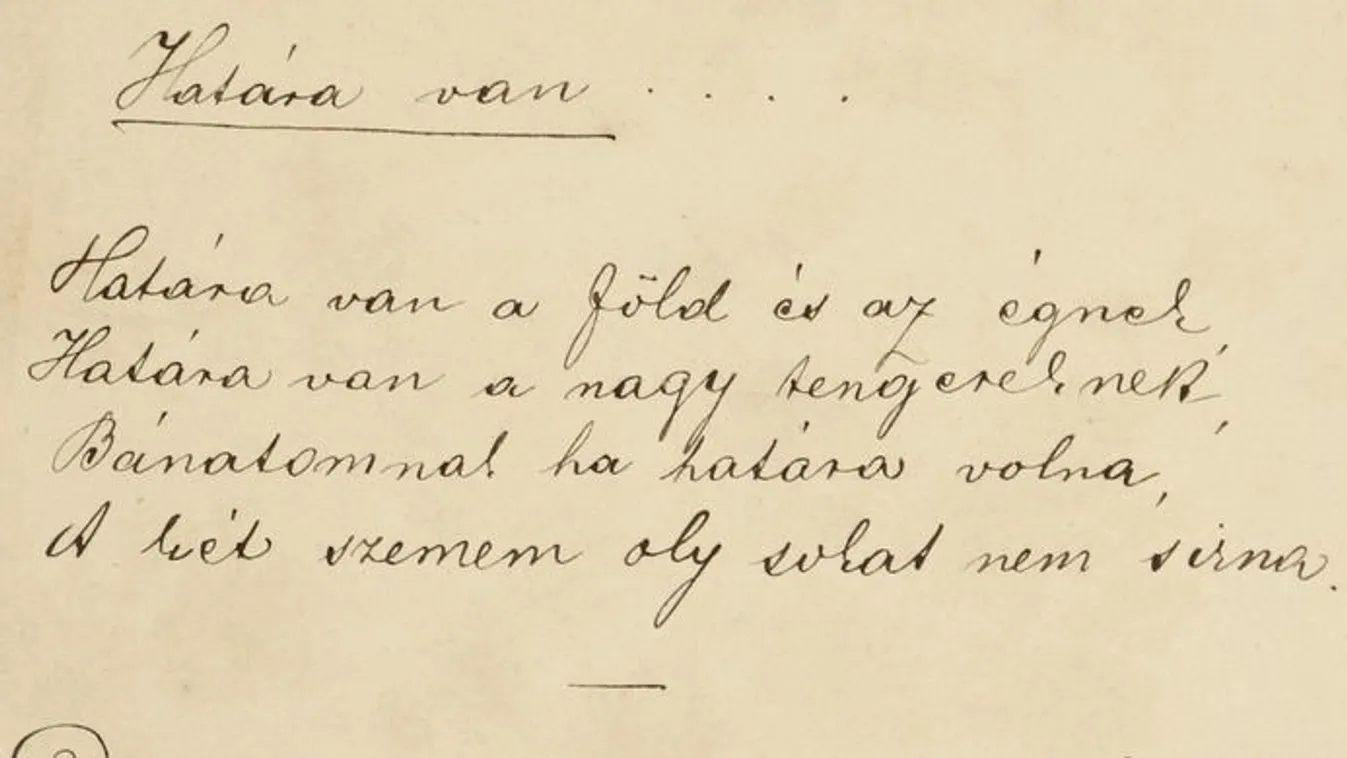 Határa van ....
Határa van a föld és az égnek,
Határa van a nagy tengereknek,
Bánatomnak ha határa volna,
A két szemem oly sokat nem sírna.